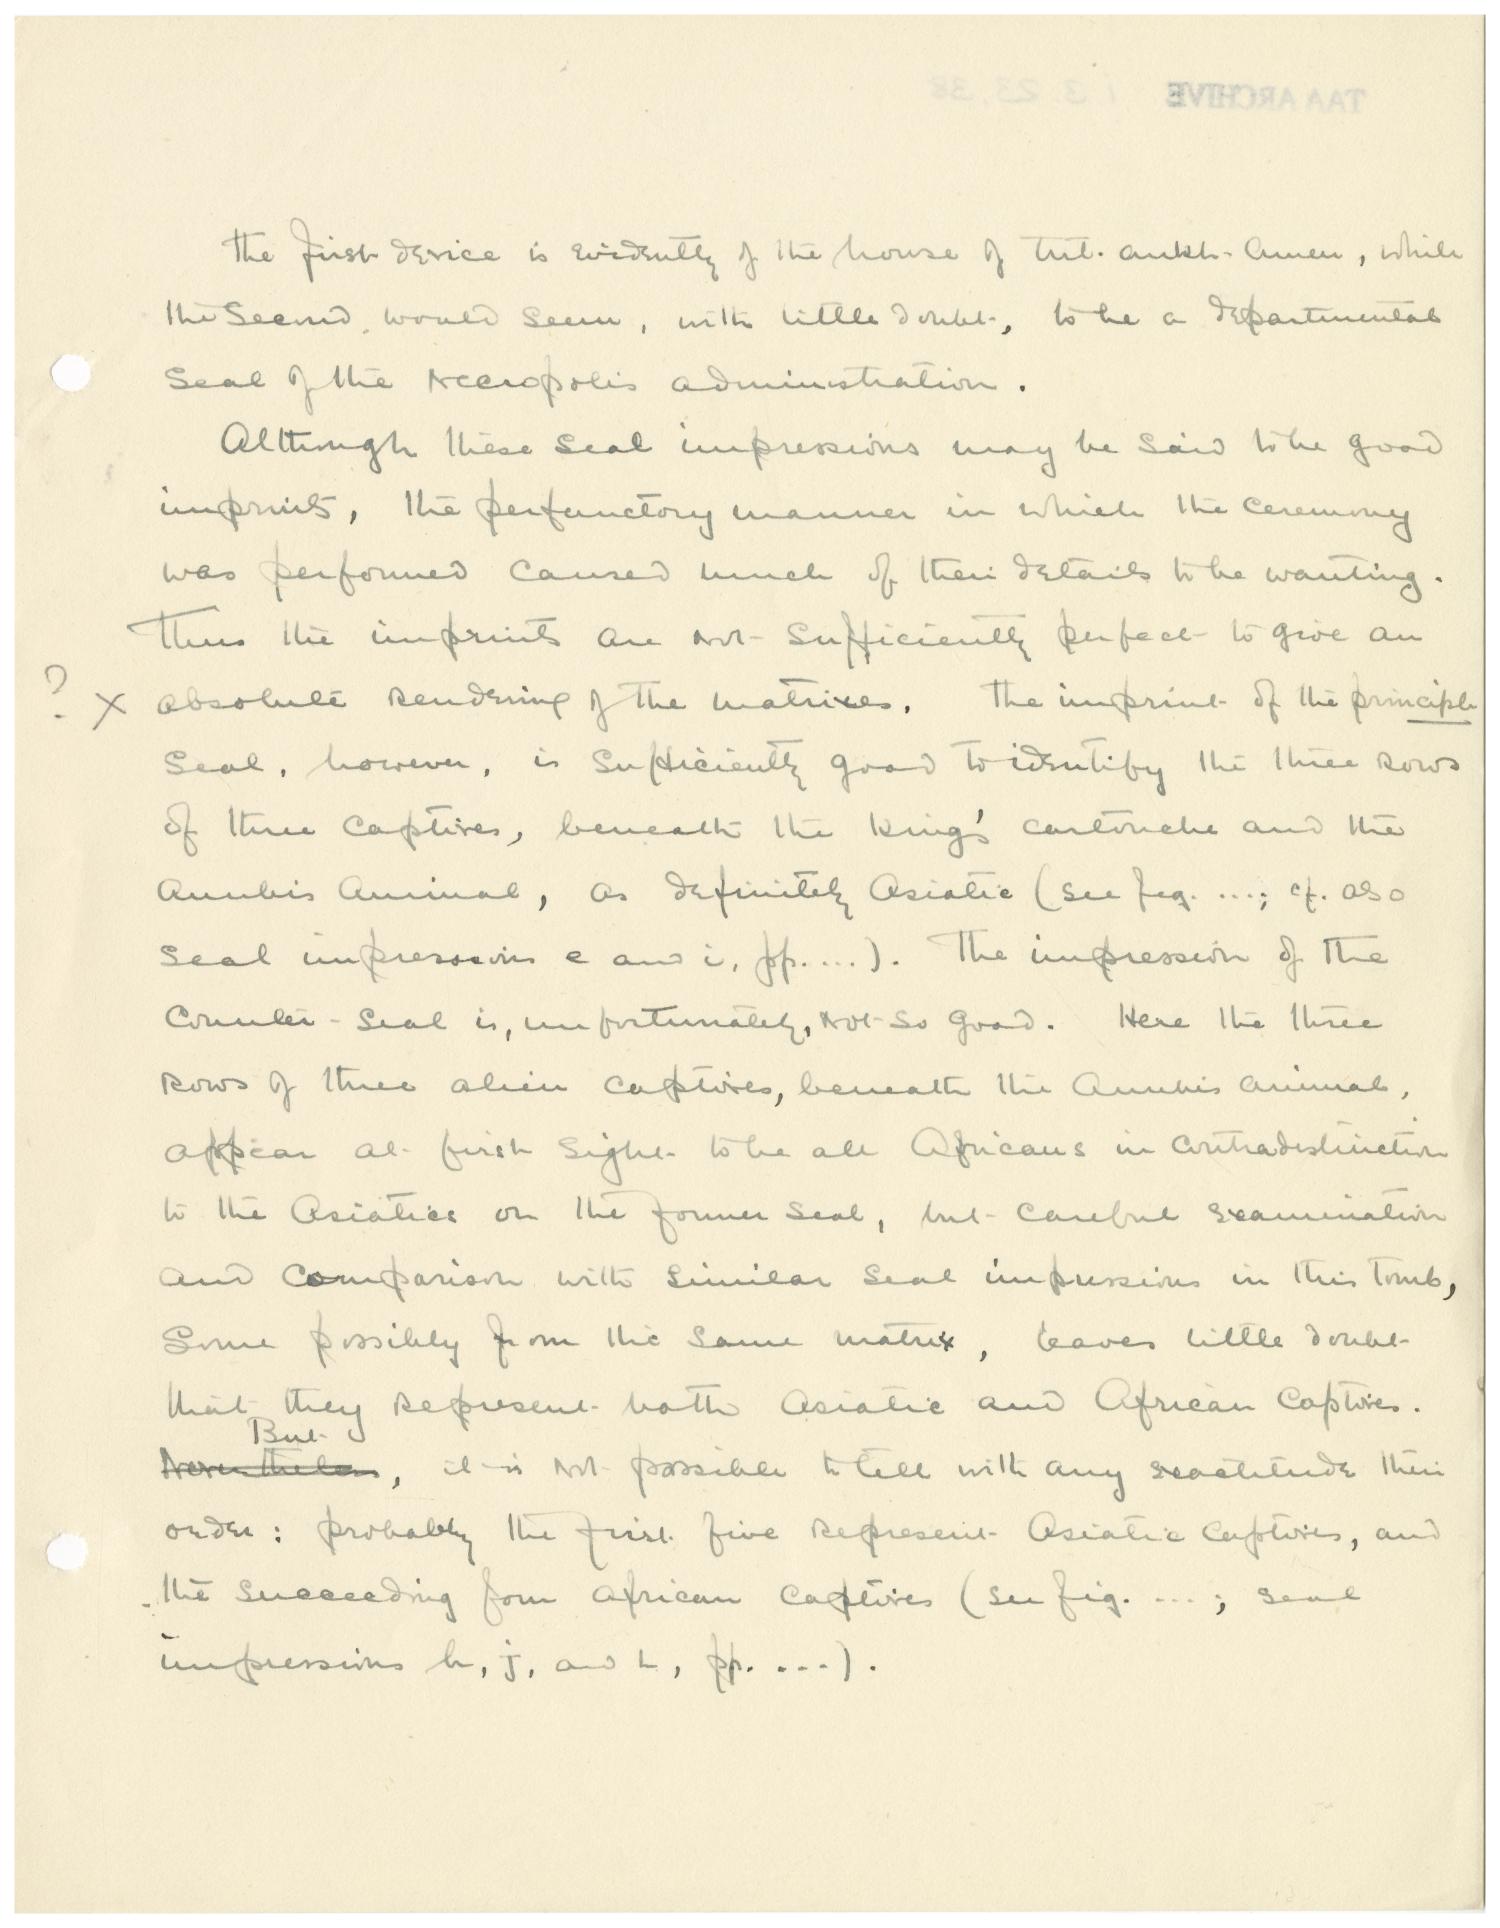 TAA ARCHIVE 1 3. 23. 38
The first device is evidently of the house of Tut.ankh-Amen, while
the second, would seem, with little doubt, to be a departmental
seal of the Necropolis administration.
Although these seal impressions may be said to be good
imprints, the perfunctory manner in which the ceremony
was performed caused much of their details to be wanting.
Thus the imprints are not sufficiently perfect to give an
? x absolute rendering of the matrixes. The imprint of the principle
seal, however, is sufficiently good to identify the three rows
of three captives, beneath the King's cartouche and the
Anubis Animal, as definitely Asiatic (see fig. ...; cf. also
seal impressions e and i, pp. ...). The impression of the
Counter-seal is, unfortunately, not so good. Here the three
rows of three alien captives, beneath the Anubis animal,
appear at first sight to be all Africans in contradistinction
to the Asiatics on the former seal, but careful examination
and comparison with similar seal impressions in this tomb,
some possibly from the same matrix, leaves little doubt
that they represent both Asiatic and African captives.
But
Nevertheless, it is not possible to tell with any exactitude their
order: probably the first five represent Asiatic captives, and
the succeeding four African captives (see fig. ...; seal
impressions h, j, and L, pp. ...).